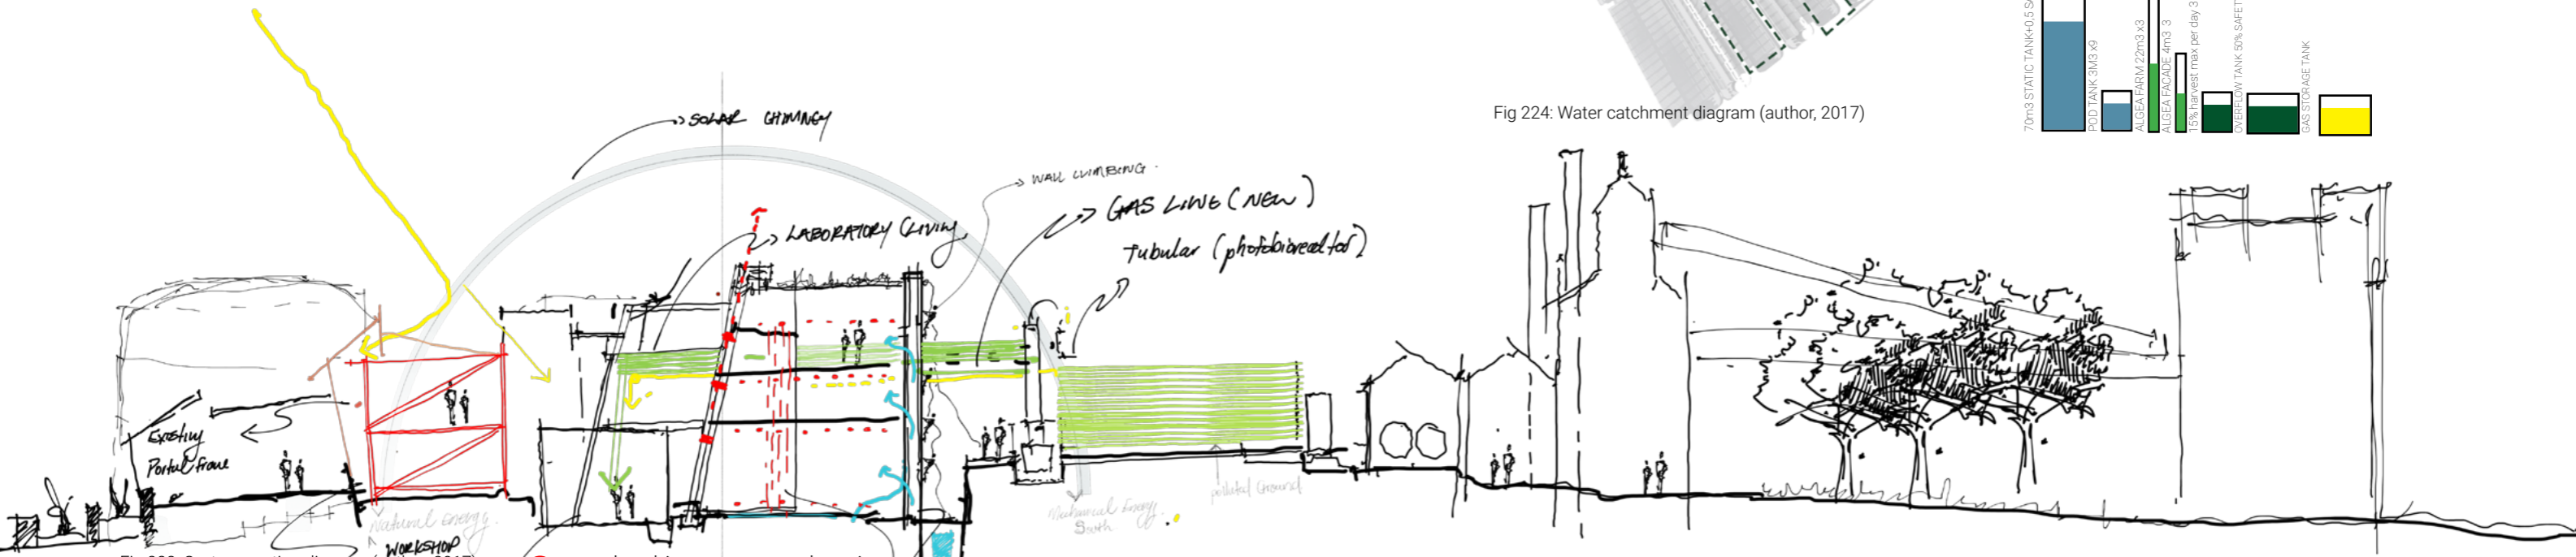 70m3 STATIC TANK+0,5 S
POD TANK 3M3 x9
ALGEA FARM 22m3 x3
ALGEA FACADE 4m3 3
15% harvest max per day 3
OVERFLOW TANK 50% SAFET
GAS STORAGE TANK
Fig 224: Water catchment diagram (author, 2017)
SOLAR CHIMNEY
WALL CLIMBING
GAS LINE (NEW)
LABORATORY (Living)
Tubular (photobioreactor)
Existing
Portal frame
polluted Ground
Natural Energy.
Mechanical Energy.
South
WORKSHOP